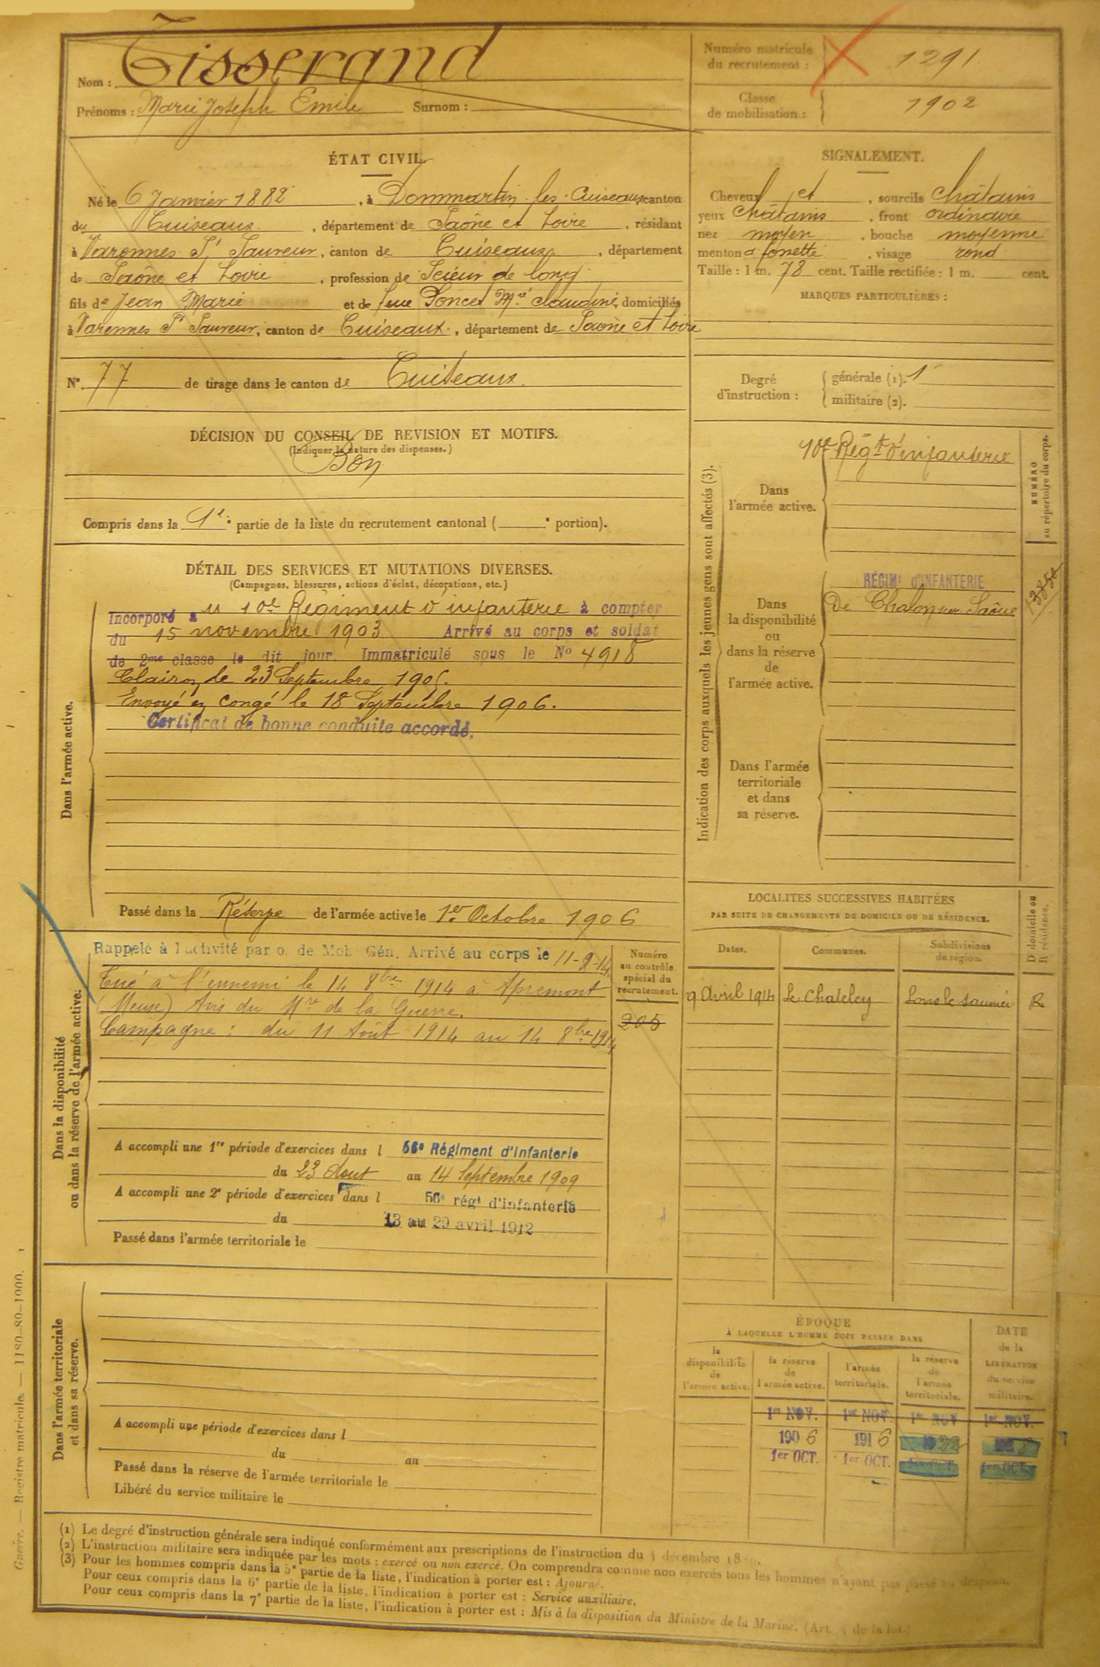 Nom : Tisserand
Prénoms : Marie Joseph Emile Surnom :
Numéro matricule
du recrutement : 1291
Classe
de mobilisation : 1902
ÉTAT CIVIL.
Né le 6 Janvier 1882, à Dommartin les Cuiseaux, canton
du Cuiseaux, département de Saône et Loire, résidant
à Varennes St Sauveur, canton de Cuiseaux, département
de Saône et Loire, profession de Scieur de long
fils de Jean Marie et de feue Poncet Mie Claudine, domiciliés
à Varennes St Sauveur, canton de Cuiseaux, département de Saône et Loire
N° 77 de tirage dans le canton de Cuiseaux.
SIGNALEMENT.
Cheveux et, sourcils châtains
yeux châtains, front ordinaire
nez moyen, bouche moyenne
menton à fossette, visage rond
Taille : 1 m. 78 cent. Taille rectifiée : 1 m. cent.
MARQUES PARTICULIÈRES :
Degré
d'instruction :
générale (1). 1
militaire (2).
DÉCISION DU CONSEIL DE REVISION ET MOTIFS.
(Indiquer la nature des dispenses.)
Bon
Compris dans la 1e partie de la liste du recrutement cantonal ( e portion).
DÉTAIL DES SERVICES ET MUTATIONS DIVERSES.
(Campagnes, blessures, actions d'éclat, décorations, etc.)
Dans l'armée active.
Incorporé au 10e Régiment d'infanterie à compter
du 15 novembre 1903 Arrivé au corps et soldat
de 2me classe le dit jour. Immatriculé sous le No 4918
Clairon le 23 Septembre 1905.
Envoyé en congé le 18 Septembre 1906.
Certificat de bonne conduite accordé.
Passé dans la Réserve de l'armée active le 1er Octobre 1906
Indication des corps auxquels les jeunes gens sont affectés (3).
NUMÉRO
au répertoire du corps.
Dans
l'armée active.
10e Régt d'infanterie
Dans
la disponibilité
ou
dans la réserve
de
l'armée active.
RÉGIMt d'INFANTERIE
De Chalon sur Saône
Dans l'armée
territoriale
et dans
sa réserve.
Dans la disponibilité
ou dans la réserve de l'armée active.
Rappelé à l'activité par o. de Mob. Gén. Arrivé au corps le 11-8-14
Tué à l'ennemi le 14 8bre 1914 à Apremont
(Meuse) Avis du Mre de la Guerre.
Campagne : du 11 Aout 1914 au 14 8bre 1914
Numéro
au contrôle
spécial du
recrutement.
305
A accompli une 1re période d'exercices dans l 56e Régiment d'Infanterie
du 23 Aout au 14 Septembre 1909
A accompli une 2e période d'exercices dans l 56e régt d'infanterie
du 13 au 29 avril 1912
Passé dans l'armée territoriale le
LOCALITÉS SUCCESSIVES HABITÉES
PAR SUITE DE CHANGEMENTS DE DOMICILE OU DE RÉSIDENCE.
Dates.
Communes.
Subdivisions
de région.
D domicile ou
R résidence.
9 Avril 1914 Le Chateley Lons le Saunier R
Dans l'armée territoriale
et dans sa réserve.
A accompli une période d'exercices dans l
du au
Passé dans la réserve de l'armée territoriale le
Libéré du service militaire le
ÉPOQUE
À LAQUELLE L'HOMME DOIT PASSER DANS
DATE
de la
LIBÉRATION
du service
militaire.
la
disponibilité
de
l'armée active.
la réserve
de
l'armée active.
l'armée
territoriale.
la réserve
de
l'armée
territoriale.
1er NOV. 1er NOV. 1er NOV 1er NOV.
1906 1916
1er OCT. 1er OCT.
(1) Le degré d'instruction générale sera indiqué conformément aux prescriptions de l'instruction du 4 décembre
(2) L'instruction militaire sera indiquée par les mots : exercé ou non exercé. On comprendra comme non exercés tous les hommes n'ayant pas passé au drapeau.
(3) Pour les hommes compris dans la 5e partie de la liste, l'indication à porter est : Ajourné.
Pour ceux compris dans la 6e partie de la liste, l'indication à porter est : Service auxiliaire.
Pour ceux compris dans la 7e partie de la liste, l'indication à porter est : Mis à la disposition du Ministre de la Marine. (Art. 4 de la loi.)
Guerre. — Registre matricule. — 1180-80-1900.